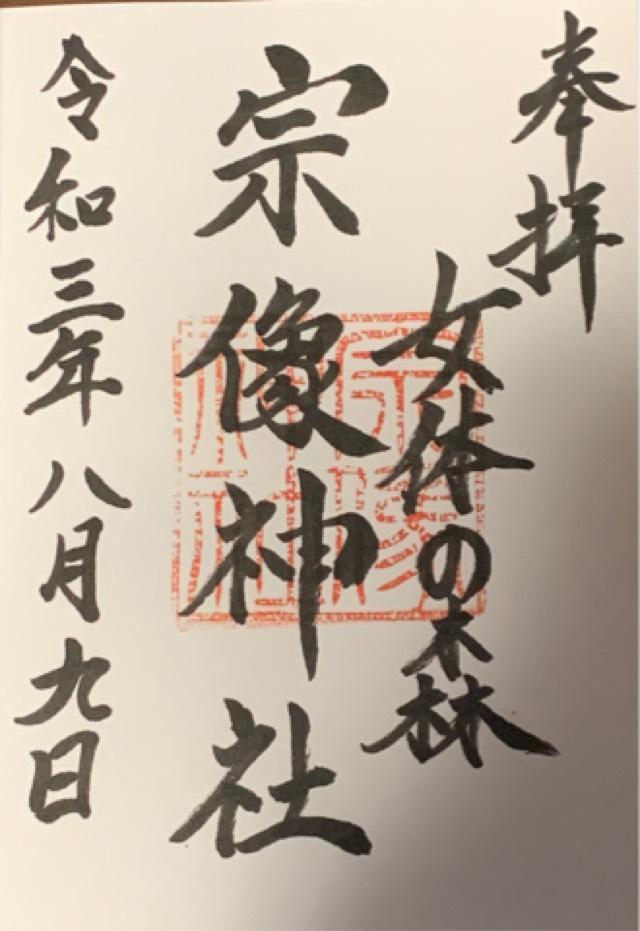 奉拝
女体の森
宗像神社
令和三年八月九日
宗像
神社